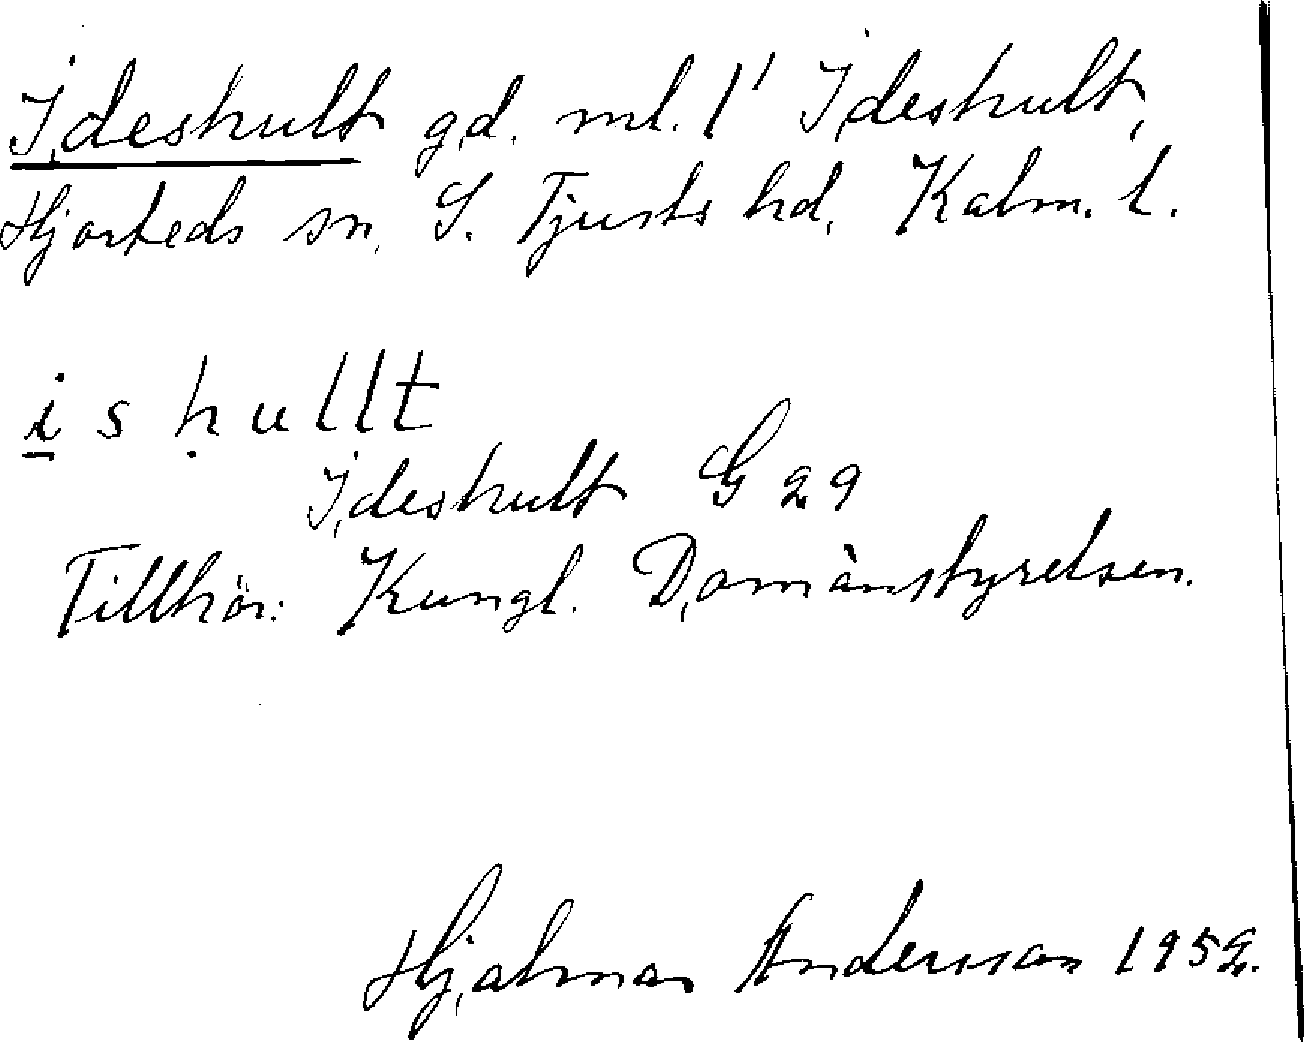 Ideshult gd. ml. 1' Ideshult,
Hjorteds sn. S. Tjusts hd. Kalm. l.
i s h u l l t
Ideshult G 29
Tillhör: Kungl. Domänstyrelsen.
Hjalmar Andersson 1952.